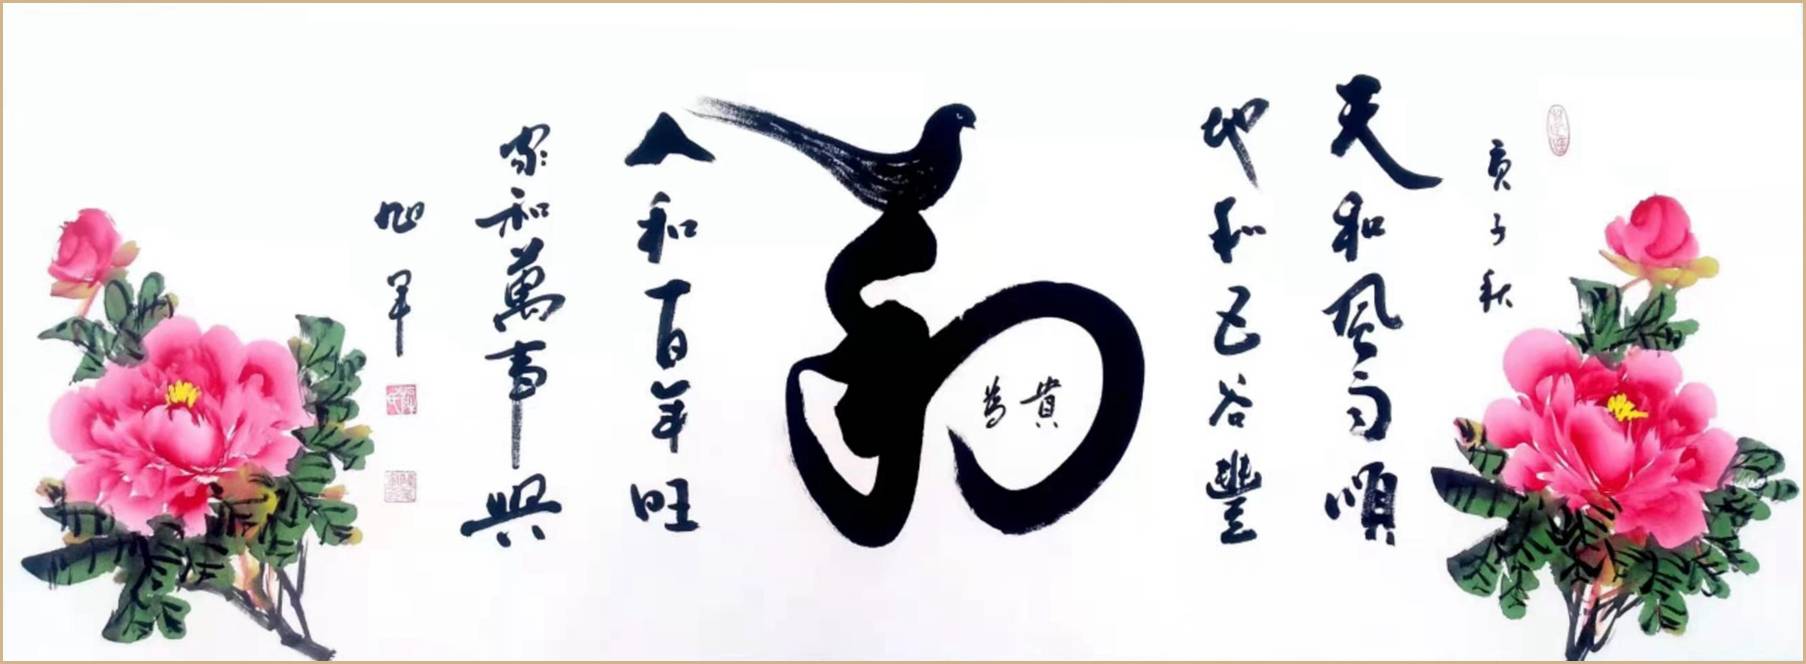 庚子秋
天和風雨順
地和五谷豐
和
為貴
人和百年旺
家和萬事興
旭